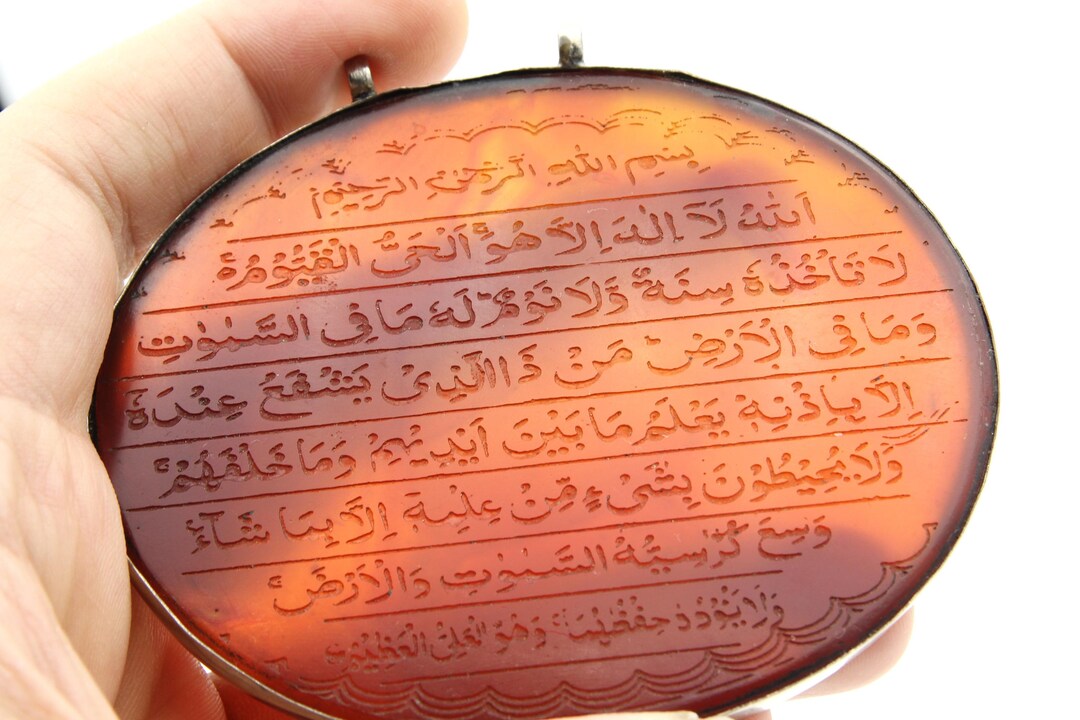 بِسْمِ اللهِ الرَّحْمٰنِ الرَّحِيْمِ
اَللهُ لَآ اِلٰهَ اِلَّا هُوَ اَلْحَىُّ الْقَيُّوْمُ
لَا تَأْخُذُهٗ سِنَةٌ وَّلَا نَوْمٌ لَهٗ مَا فِى السَّمٰوٰتِ
وَمَا فِى الْاَرْضِ مَنْ ذَا الَّذِىْ يَشْفَعُ عِنْدَهٗ
اِلَّا بِاِذْنِهٖ يَعْلَمُ مَا بَيْنَ اَيْدِيْهِمْ وَمَا خَلْفَهُمْ
وَلَا يُحِيْطُوْنَ بِشَىْءٍ مِّنْ عِلْمِهٖ اِلَّا بِمَا شَآءَ
وَسِعَ كُرْسِيُّهُ السَّمٰوٰتِ وَالْاَرْضَ
وَلَا يَئُوْدُهٗ حِفْظُهُمَا وَهُوَ الْعَلِىُّ الْعَظِيْمُ